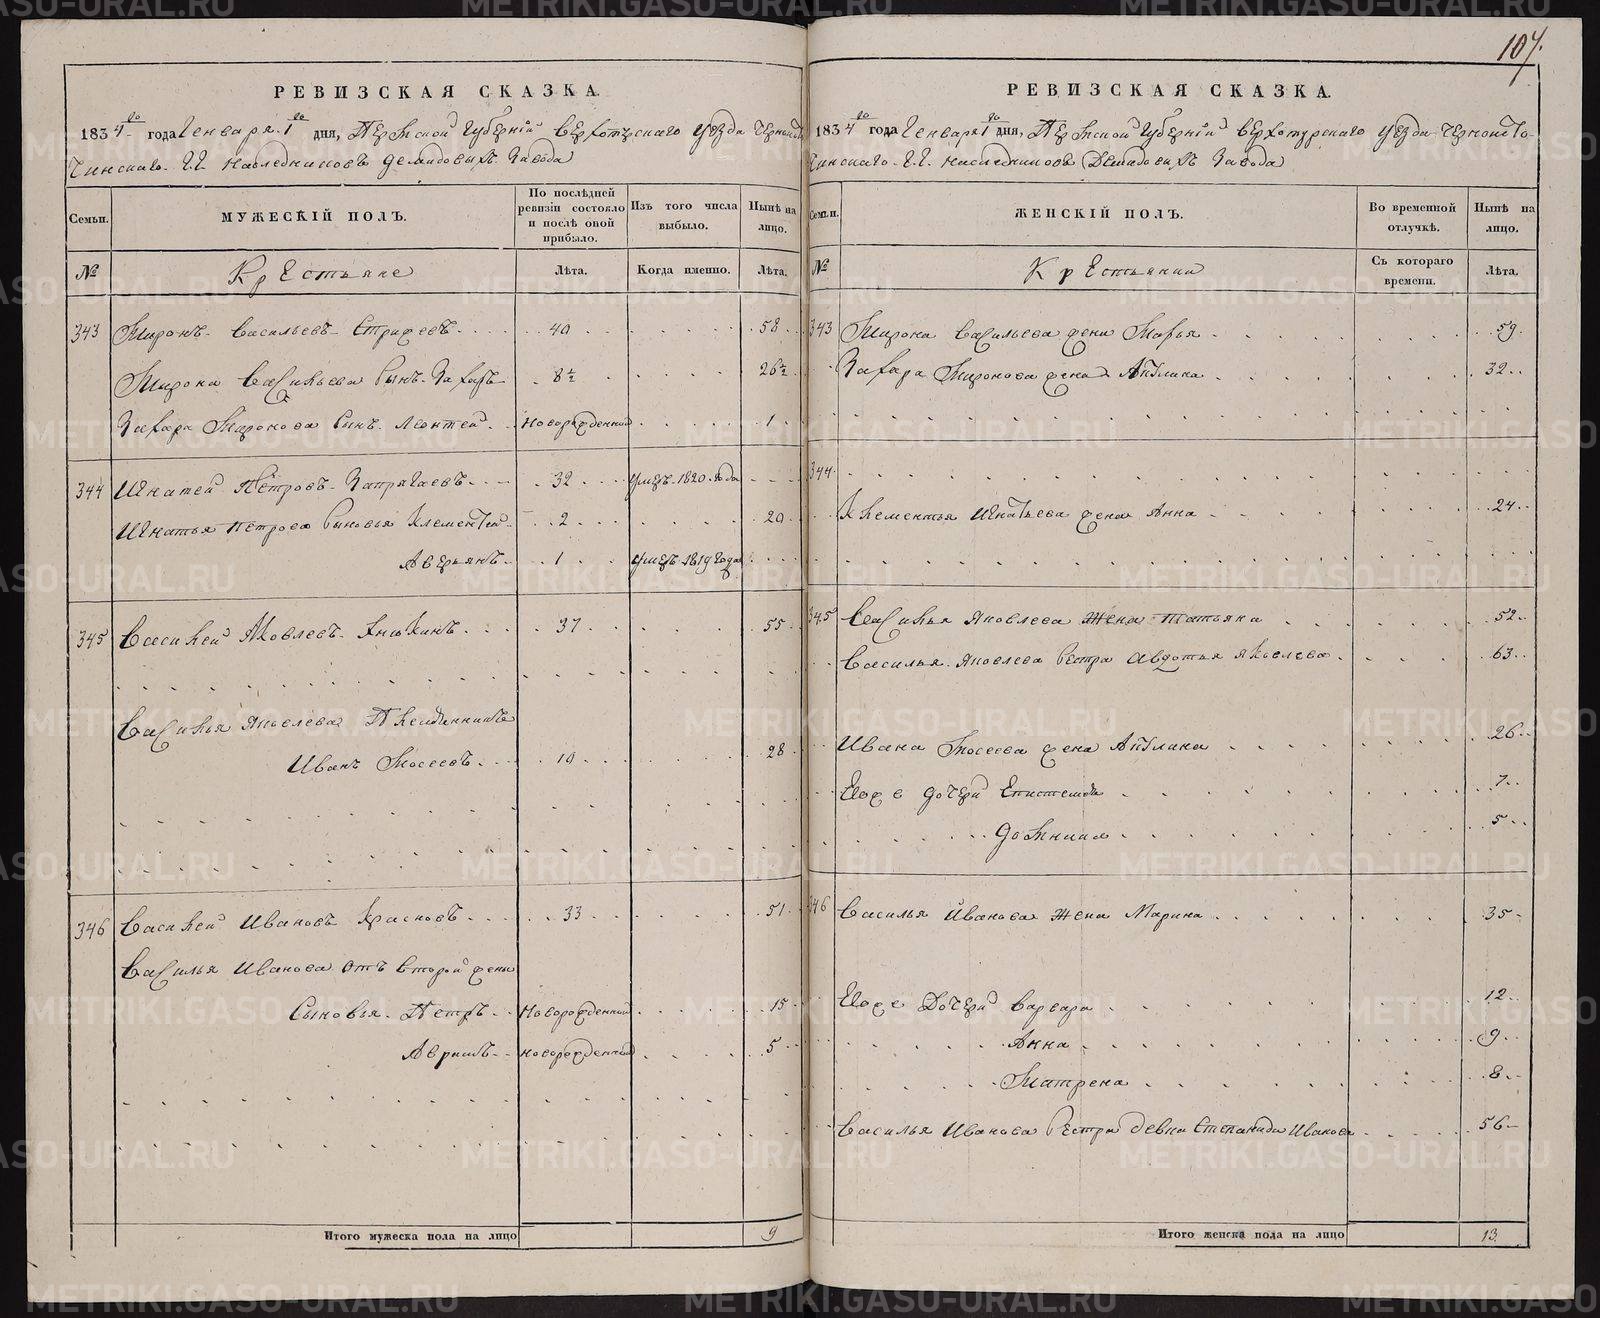 107.
РЕВИЗСКАЯ СКАЗКА.
1834го года Генваря 1го дня, Пермской Губернiи Верхотурскаго уезда Черноисто-
чинскаго Г.Г. Наследниковъ Демидовыхъ Завода
Семьи.
МУЖЕСКIЙ ПОЛЪ.
По послѣдней ревизiи состояло и послѣ оной прибыло.
Изъ того числа выбыло.
Нынѣ на лицо.
№
Крестьяне
Лѣта.
Когда именно.
Лѣта.
343 Миронъ Васильевъ 40 58
Мирона Васильева Сынъ Захаръ 8½ 26½
Захара Миронова Сынъ Леонтей Новорожденный 1
344 Игнатей Петровъ Запрягаевъ 32 умеръ 1820 года
Игнатья Петрова Сыновья Клементей 2 20
Аверьянъ 1 умеръ 1819 года
345 Василей Яковлевъ 37 55
Василья Яковлева Племянникъ
Иванъ Мосеевъ 10 28
346 Василей Ивановъ Красновъ 33 51
Василья Иванова отъ второй жены
Сыновья Петръ Новорожденный 15
Новорожденный 5
Итого мужеска пола на лицо 9
РЕВИЗСКАЯ СКАЗКА.
1834го года Генваря 1го дня, Пермской Губернiи Верхотурскаго уезда Черноисто-
чинскаго Г.Г. Наследниковъ Демидовыхъ Завода
Семьи.
ЖЕНСКIЙ ПОЛЪ.
Во временной отлучкѣ.
Нынѣ на лицо.
№
Крестьянки
Съ котораго времени.
Лѣта.
343 Мирона Васильева жена Марья 59
Захара Миронова жена Акулина 32
344
Клементья Игнатьева жена Анна 24
345 Василья Яковлева Жена Татьяна 52
Василья Яковлева Сестра Авдотья Яковлева 63
Ивана Мосеева жена Акулина 26
Ево же дочери 7
Домника 5
346 Василья Иванова Жена Марина 35
Ево же Дочери Варвара 12
Анна 9
Матрена 8
Василья Иванова Сестра девка Степанида Иванова 56
Итого женска пола на лицо 13.
METRIKI.GASO-URAL.RU